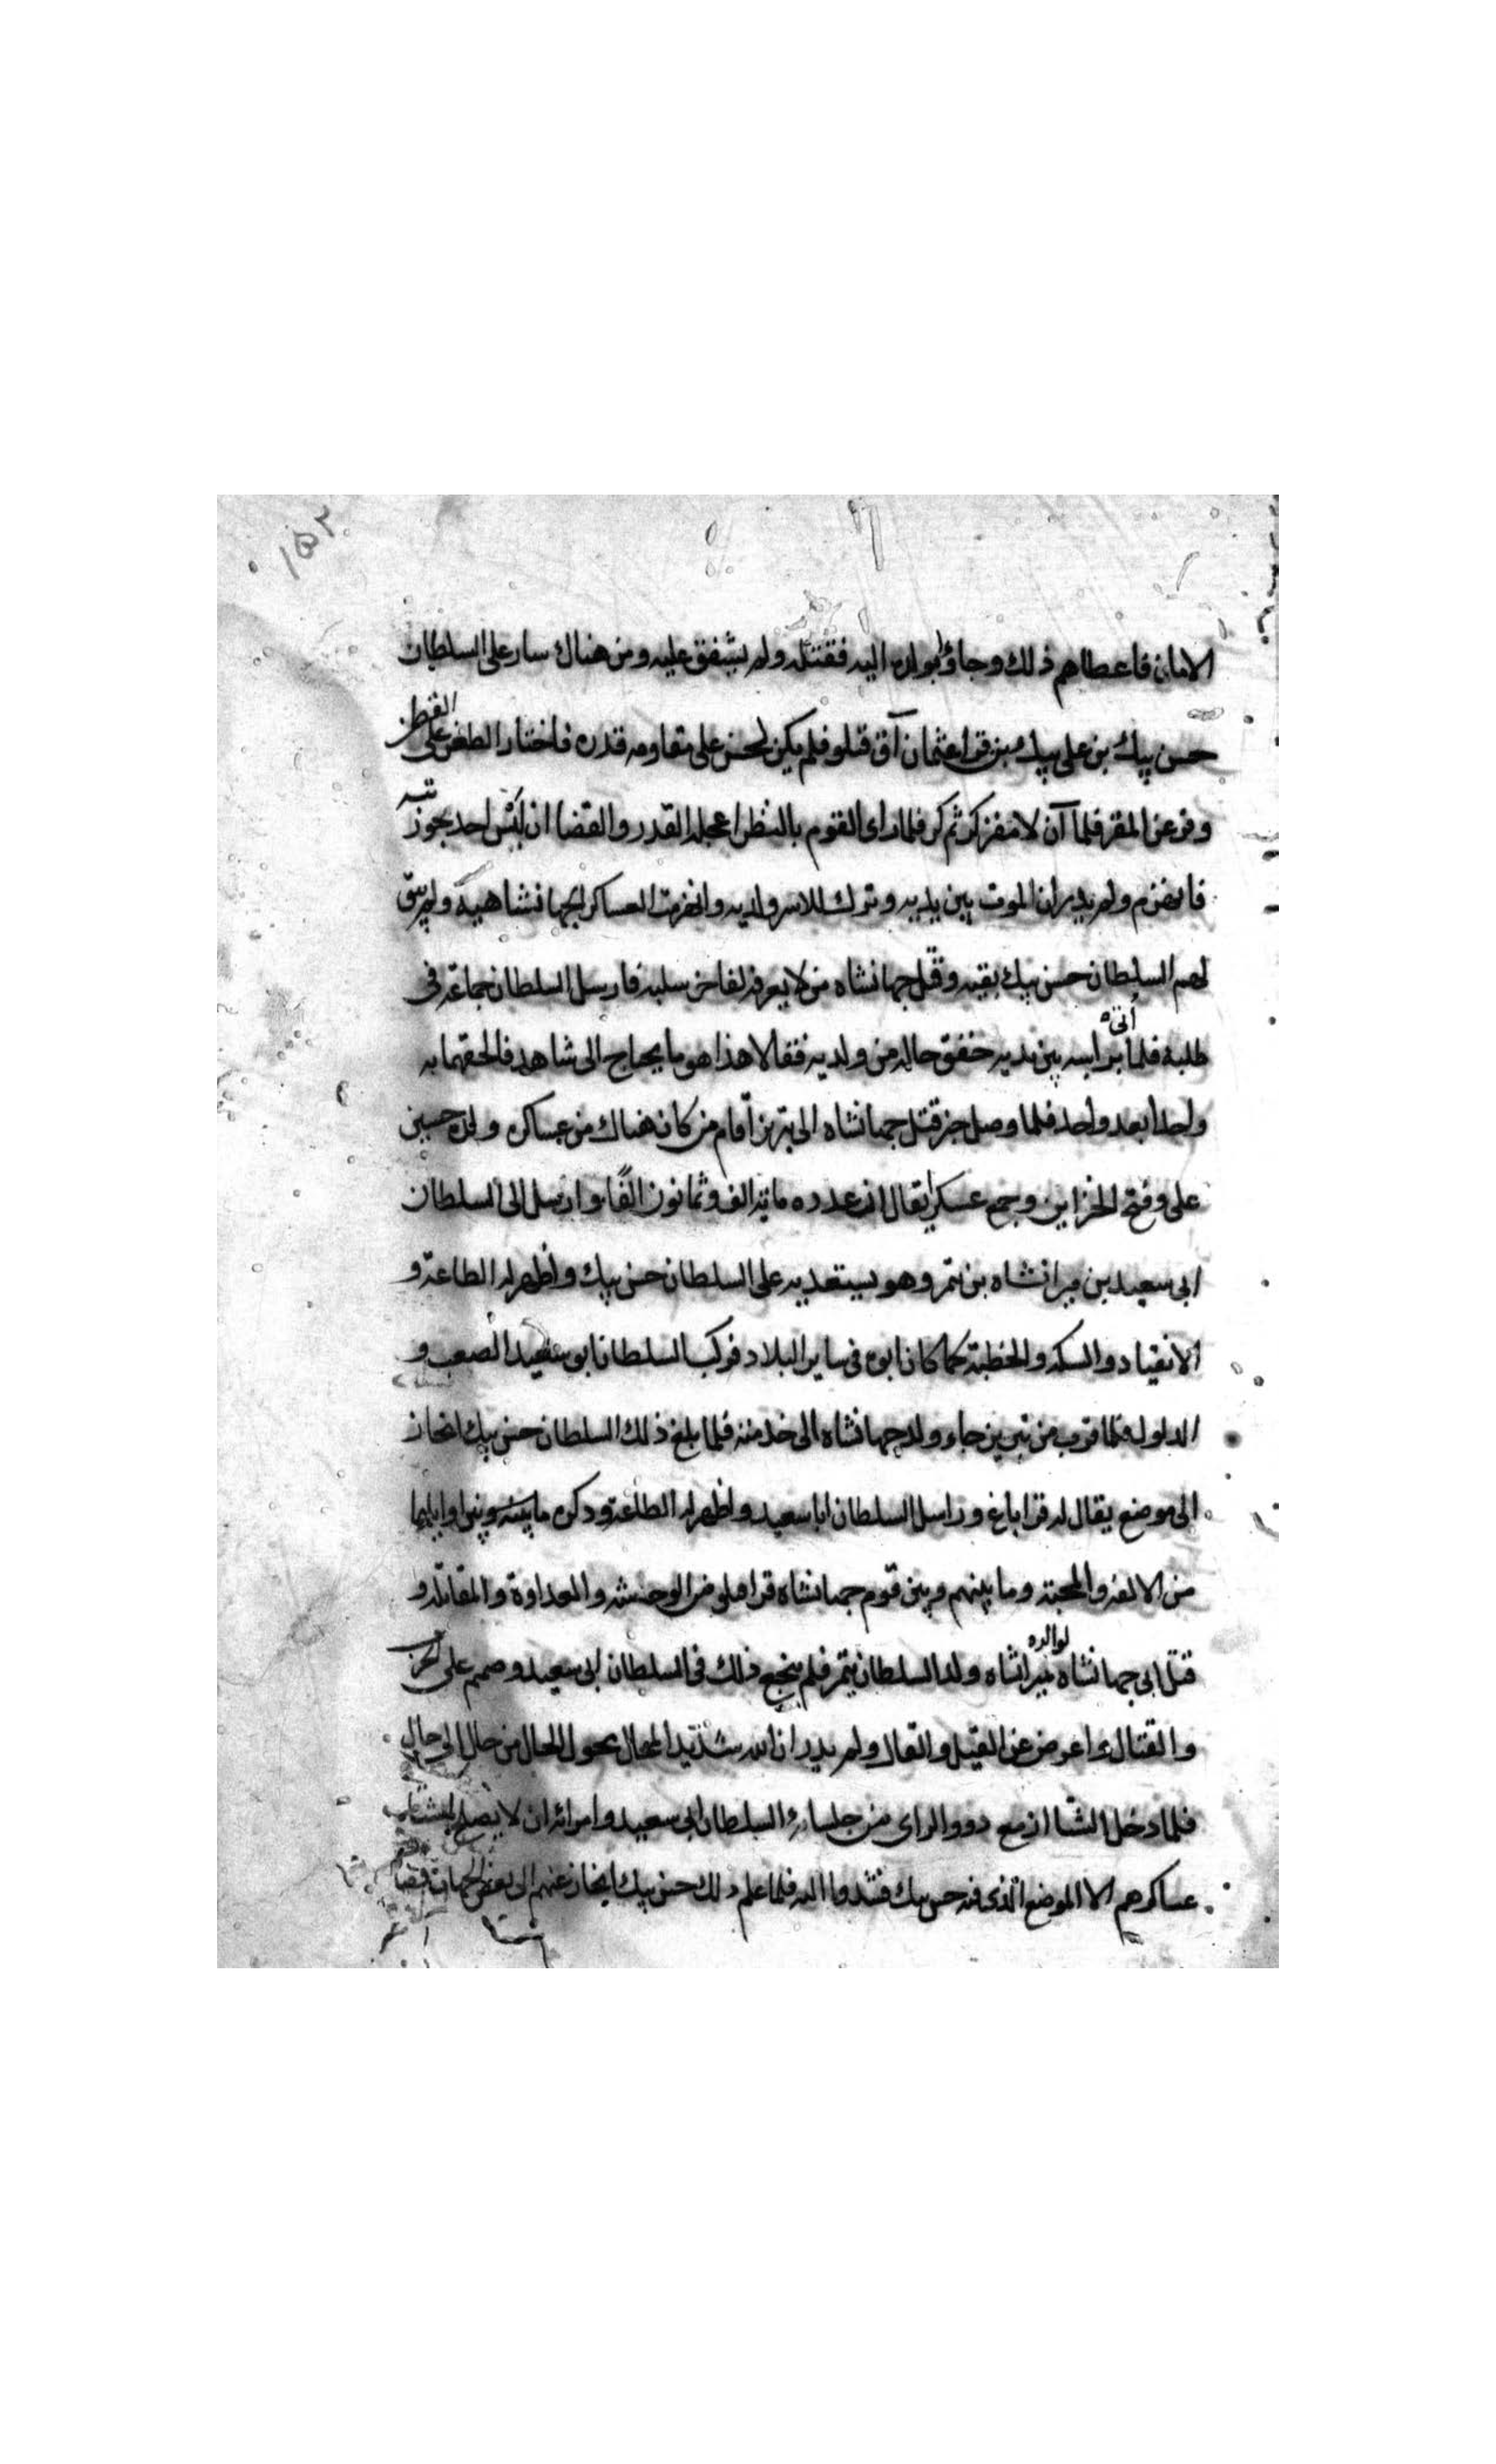 ١٥٢
الامان فاعطاهم ذلك وجاؤا بولده اليه فقتله ولم يشفق عليه ومن هناك سار على السلطان
حسن بيك بن على بيك بن قرا عثمان آق قتلو فلم يكن لحسن على مقاومه قدره فاختار الظعن على القطن
وفر عن المقر فلما آن لا مفر كر ثم كر فلما راى القوم بالنظر اعجله القدر والقضا ان ليس احد يجوز
فانهزم ولم يدر ان الموت بين يديه وترك للاسر ولديه وانهزمت العساكر الجهانشاهية ولم يبق
لهم السلطان حسن بيك بقيه وقتل جهانشاه من لا يعرفه لفاخر سلبه فارسل السلطان جماعة فى
طلبه فلما اتى براسه بين يديه حقق حاله من ولديه فقالا هذا هو ما يحتاج الى شاهد فالحقهما به
واحدا بعد واحد فلما وصل خبر قتل جهانشاه الى تبريز اقام من كان هناك من عساكره ولده حسين
على وفتح الخزاين وجمع عسكرا يقال ان عدده مائة الف وثمانون الفا وارسل الى السلطان
ابى سعيد بن ميرانشاه بن تمر وهو يستعديه على السلطان حسن بيك واظهر له الطاعة و
الانقياد والسكه والخطبة كما كان ابوه فى ساير البلاد فركب السلطان ابو سعيد الصعب و
الدلول فلما قرب من تبريز جاء ولد جهانشاه الى خدمته فلما بلغ ذلك السلطان حسن بيك انحاز
الى موضع يقال له قرا باغ وراسل السلطان ابا سعيد واظهر له الطاعة وذكره ما بينه وبين اوايلهما
من الالفه والمحبة وما بينهم وبين قوم جهانشاه قرا قيلو من الوحشه والعداوة والمقاتله و
قتل ابى جهانشاه لوالده ميرانشاه ولد السلطان تيمر فلم ينجع ذلك فى السلطان ابى سعيد وصمم على الحرب
والقتال واعرض عن القيل والقال ولم يدر ان الله شديد المحال يحول الحال من حال الى حال
فلما دخل الشتا ازمع ذوو الراى من جلساء السلطان ابى سعيد وامرائه ان لا يصلح لمشتاب
عساكرهم الا الموضع الذى فيه حسن بيك فشدوا اليه فلما علم ذلك حسن بيك انحاز عنهم الى بعض الجهات